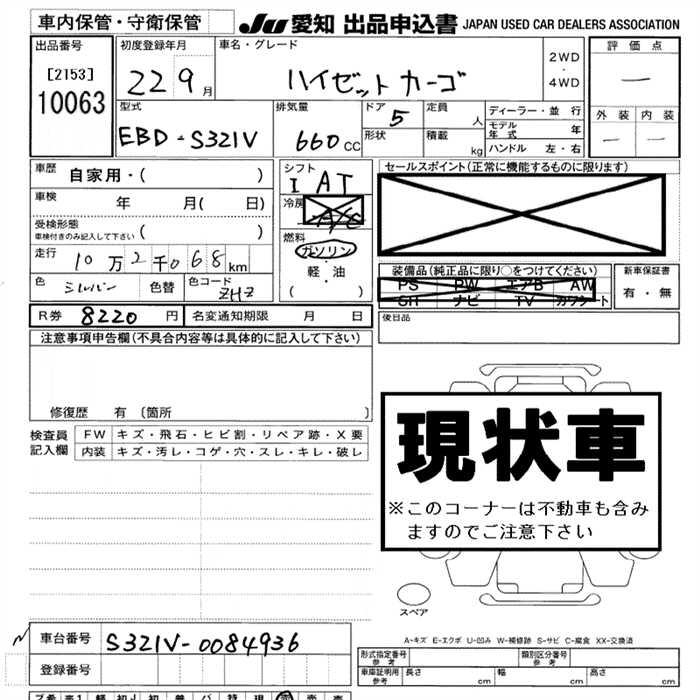 車内保管・守衛保管
JU 愛知 出品申込書 JAPAN USED CAR DEALERS ASSOCIATION
出品番号
[2153]
10063
初度登録年月
22 9月
車名・グレード
ハイゼットカーゴ
2WD
・
4WD
評価点
—
外装 内装
— —
型式
EBD-S321V
排気量
660cc
ドア
5
形状
定員
人
積載
kg
ディーラー・並行
モデル年式 年
ハンドル 左・右
車歴 自家用・( )
車検 年 月( 日)
受検形態
車検付きのみ記入して下さい ( )
走行 10万2千068km
色 シルバー 色替 色コード ZHZ
シフト
I AT
冷房
A/C
燃料
ガソリン
・
軽・油
( )
セールスポイント(正常に機能するものに限ります)
装備品(純正品に限り○をつけてください)
PS PW エアB AW
SH ナビ TV カワシート
新車保証書
有・無
R券 8220円 名変通知期限 月 日
後日品
注意事項申告欄(不具合内容等は具体的に記入して下さい)
修復歴 有〔箇所 〕
検査員記入欄
FW キズ・飛石・ヒビ割・リペア跡・X要
内装 キズ・汚レ・コゲ・穴・スレ・キレ・破レ
現状車
※このコーナーは不動車も含み
ますのでご注意下さい
スペア
A-キズ E-エクボ U-凹み W-補修跡 S-サビ C-腐食 XX-交換済
車台番号 S321V-0084936
登録番号
形式指定番号 参考
類別区分番号 参考
車庫証明用 参考 長さ 幅 高さ
cm cm cm